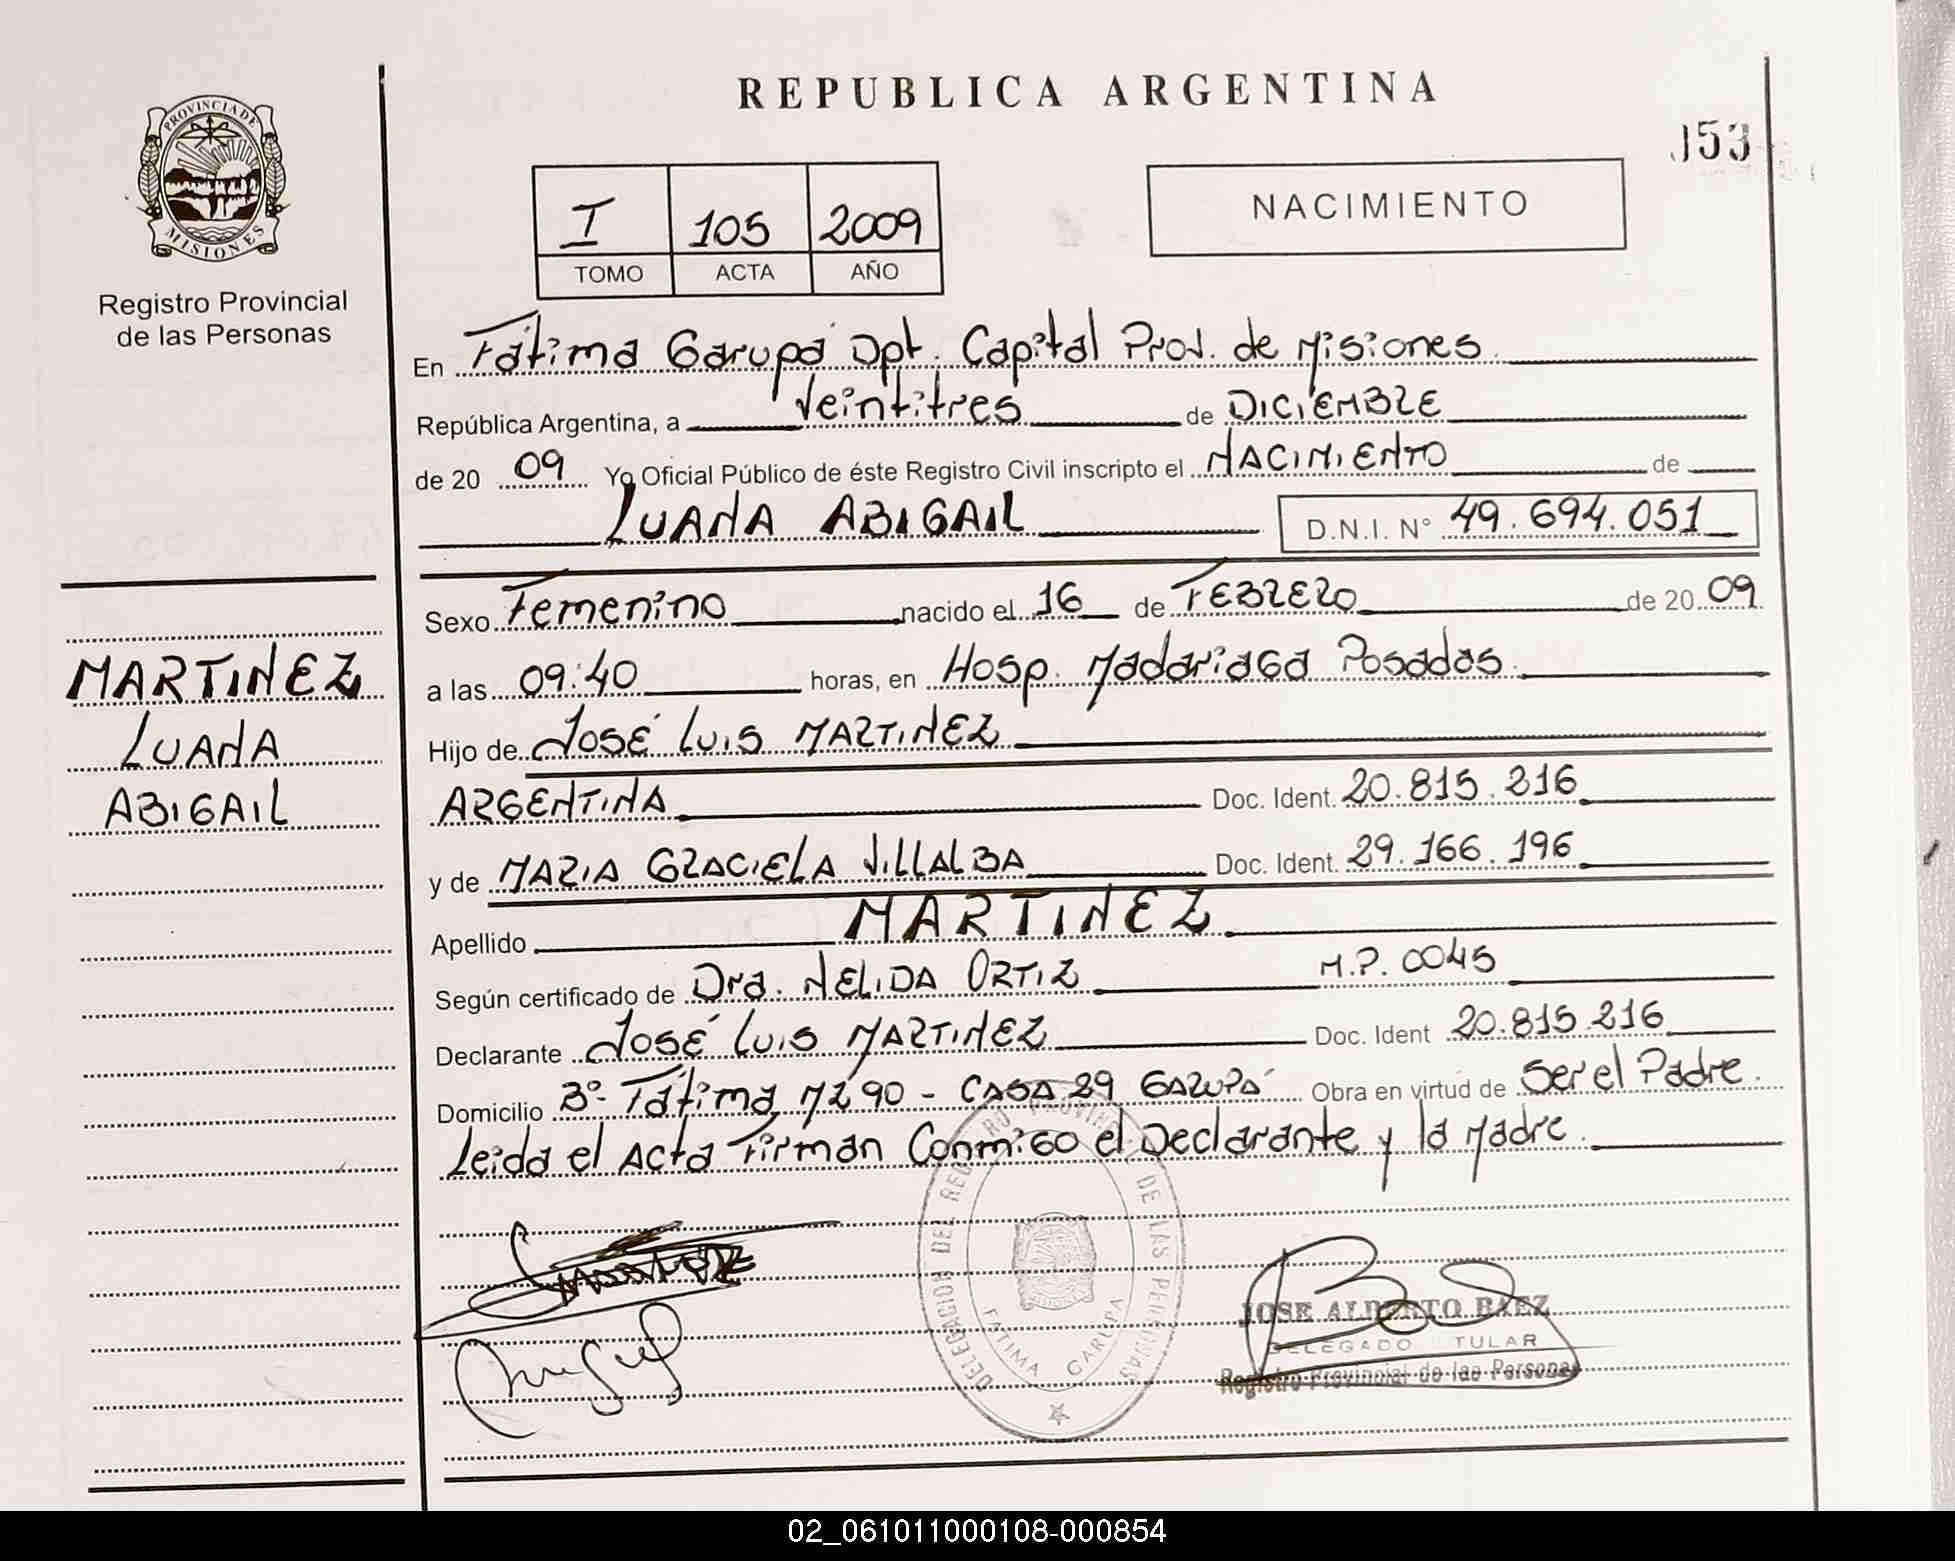 REPUBLICA ARGENTINA
153
PROVINCIA DE
MISIONES
Registro Provincial
de las Personas
I 105 2009
TOMO ACTA AÑO
NACIMIENTO
En Fátima Garupá Dpt. Capital Prov. de Misiones
República Argentina, a Veintitres de DICIEMBRE
de 20 09 Yo Oficial Público de éste Registro Civil inscripto el NACIMIENTO de
LUANA ABIGAIL D.N.I. N° 49.694.051
Sexo Femenino nacido el 16 de FEBRERO de 20 09
MARTINEZ
LUANA
ABIGAIL
a las 09:40 horas, en Hosp. Madariaga Posadas.
Hijo de José Luis MARTINEZ
ARGENTINA Doc. Ident. 20.815.216
y de MARIA GRACIELA VILLALBA Doc. Ident. 29.166.196
Apellido MARTINEZ
Según certificado de Dra. NELIDA ORTIZ M.P. 0045
Declarante José Luis MARTINEZ Doc. Ident 20.815.216
Domicilio B°- Fátima MZ 90 - CASA 29 GARUPÁ Obra en virtud de Ser el Padre.
Leida el Acta Firman Conmigo el Declarante y la Madre.
DELEGACION DEL REGISTRO PROVINCIAL DE LAS PERSONAS
FATIMA GARUPA
JOSE ALBERTO BAEZ
DELEGADO TULAR
Registro Provincial de las Personas
02_061011000108-000854